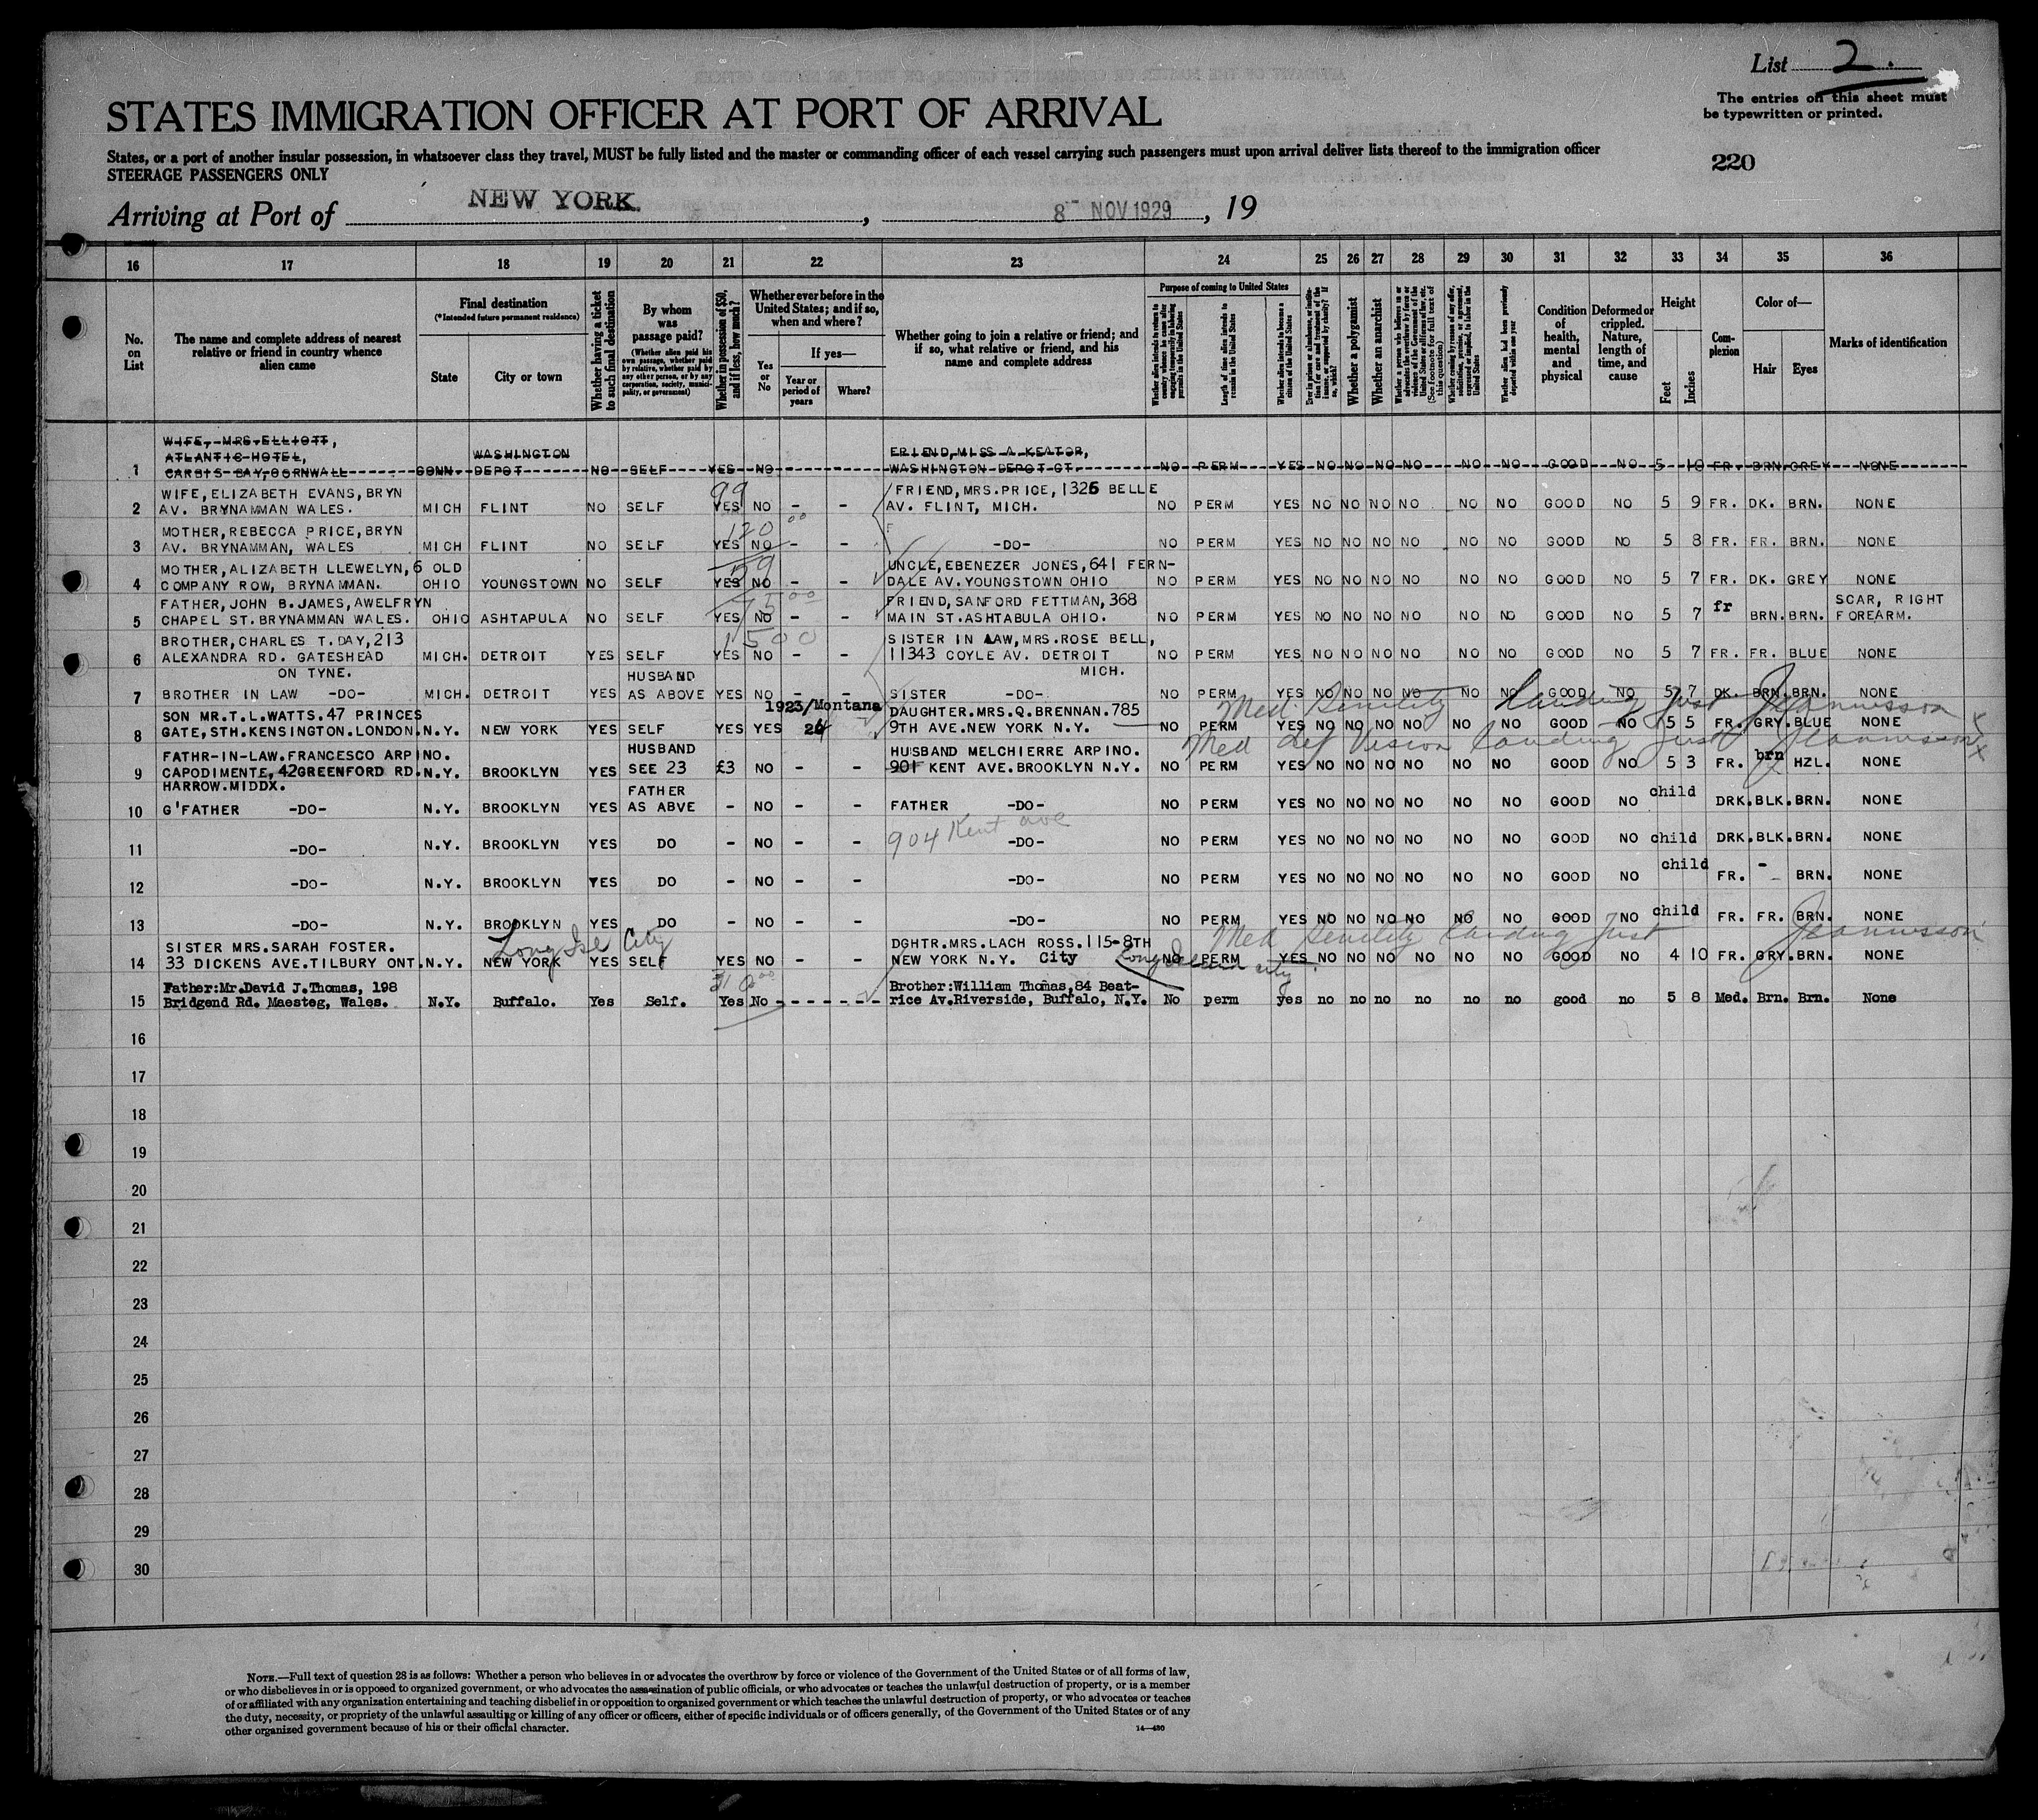 List 2.
The entries on this sheet must
be typewritten or printed.
STATES IMMIGRATION OFFICER AT PORT OF ARRIVAL
States, or a port of another insular possession, in whatsoever class they travel, MUST be fully listed and the master or commanding officer of each vessel carrying such passengers must upon arrival deliver lists thereof to the immigration officer
STEERAGE PASSENGERS ONLY
220
Arriving at Port of NEW YORK, 8 NOV 1929, 19
16 17 18 19 20 21 22 23 24 25 26 27 28 29 30 31 32 33 34 35 36
No. on List
The name and complete address of nearest relative or friend in country whence alien came
Final destination
(*Intended future permanent residence)
State
City or town
Whether having a ticket to such final destination
By whom was passage paid?
(Whether alien paid his own passage, whether paid by relative, whether paid by any other person, or by any corporation, society, municipality, or government)
Whether in possession of $50, and if less, how much?
Whether ever before in the United States; and if so, when and where?
Yes or No
If yes—
Year or period of years
Where?
Whether going to join a relative or friend; and if so, what relative or friend, and his name and complete address
Purpose of coming to United States
Length of time alien intends to remain in the United States
Whether alien intends to become a citizen of the United States
Whether a polygamist
Whether an anarchist
Condition of health, mental and physical
Deformed or crippled. Nature, length of time, and cause
Height
Feet
Inches
Complexion
Color of—
Hair
Eyes
Marks of identification
WIFE, MRS. ELLIOTT,
ATLANTIC HOTEL, WASHINGTON FRIEND, MISS A KEATOR,
1 CARBIS BAY, CORNWALL CONN DEPOT NO SELF YES NO - - WASHINGTON DEPOT CT. NO PERM YES NO NO NO NO NO NO GOOD NO 5 10 FR. BRN GREY NONE
WIFE, ELIZABETH EVANS, BRYN 99 FRIEND, MRS. PRICE, 1326 BELLE
2 AV. BRYNAMMAN WALES. MICH FLINT NO SELF YES NO - - AV. FLINT, MICH. NO PERM YES NO NO NO NO NO NO GOOD NO 5 9 FR. DK. BRN. NONE
MOTHER, REBECCA PRICE, BRYN 120 00
3 AV. BRYNAMMAN, WALES MICH FLINT NO SELF YES NO - - -DO- NO PERM YES NO NO NO NO NO NO GOOD NO 5 8 FR. FR. BRN. NONE
MOTHER, ALIZABETH LLEWELYN, 6 OLD UNCLE, EBENEZER JONES, 641 FERN-
4 COMPANY ROW, BRYNAMMAN. OHIO YOUNGSTOWN NO SELF YES NO - - DALE AV. YOUNGSTOWN OHIO NO PERM YES NO NO NO NO NO NO GOOD NO 5 7 FR. DK. GREY NONE
FATHER, JOHN B. JAMES, AWELFRYN FRIEND, SANFORD FETTMAN, 368 fr SCAR, RIGHT
5 CHAPEL ST. BRYNAMMAN WALES. OHIO ASHTAPULA NO SELF YES NO - - MAIN ST. ASHTABULA OHIO. NO PERM YES NO NO NO NO NO NO GOOD NO 5 7 BRN. BRN. FOREARM.
BROTHER, CHARLES T. DAY, 213 1500 SISTER IN LAW, MRS. ROSE BELL,
6 ALEXANDRA RD. GATESHEAD MICH. DETROIT YES SELF YES NO - - 11343 COYLE AV. DETROIT NO PERM YES NO NO NO NO NO NO GOOD NO 5 7 FR. FR. BLUE NONE
ON TYNE. HUSBAND MICH.
7 BROTHER IN LAW -DO- MICH. DETROIT YES AS ABOVE YES NO - - SISTER -DO- NO PERM YES NO NO NO NO NO NO GOOD NO 5 7 DK. BRN. BRN. NONE
Med. Senility landing Just
SON MR. T. L. WATTS. 47 PRINCES 1923/Montana DAUGHTER. MRS. Q. BRENNAN. 785
8 GATE, STH. KENSINGTON. LONDON. N.Y. NEW YORK YES SELF YES YES 24 9TH AVE. NEW YORK N.Y. NO PERM YES NO NO NO NO NO NO GOOD NO 5 5 FR. GRY. BLUE NONE
Med def Vision landing Just
FATHR-IN-LAW. FRANCESCO ARPINO. HUSBAND HUSBAND MELCHIERRE ARPINO. brn
9 CAPODIMENTE, 42 GREENFORD RD. N.Y. BROOKLYN YES SEE 23 £3 NO - - 901 KENT AVE. BROOKLYN N.Y. NO PERM YES NO NO NO NO NO NO GOOD NO 5 3 FR. HZL. NONE
HARROW. MIDDX. FATHER child
10 G'FATHER -DO- N.Y. BROOKLYN YES AS ABVE - NO - - FATHER -DO- NO PERM YES NO NO NO NO NO NO GOOD NO DRK. BLK. BRN. NONE
904 Kent ave
11 -DO- N.Y. BROOKLYN YES DO - NO - - -DO- NO PERM YES NO NO NO NO NO NO GOOD NO child DRK. BLK. BRN. NONE
child
12 -DO- N.Y. BROOKLYN YES DO - NO - - -DO- NO PERM YES NO NO NO NO NO NO GOOD NO FR. - BRN. NONE
child
13 -DO- N.Y. BROOKLYN YES DO - NO - - -DO- NO PERM YES NO NO NO NO NO NO GOOD NO FR. FR. BRN. NONE
Long Isl City Med Senility landing Just
SISTER MRS. SARAH FOSTER. DGHTR. MRS. LACH ROSS. 115-8TH
14 33 DICKENS AVE. TILBURY ONT. N.Y. NEW YORK YES SELF YES NO - - NEW YORK N.Y. City Long Island city NO PERM YES NO NO NO NO NO NO GOOD NO 4 10 FR. GRY. BRN. NONE
Father: Mr. David J. Thomas, 198 Brother: William Thomas, 84 Beat-
15 Bridgend Rd. Maesteg, Wales. N.Y. Buffalo. Yes Self. Yes No - - - - - - rice Av. Riverside, Buffalo, N.Y. No perm yes no no no no no no good no 5 8 Med. Brn. Brn. None
16
17
18
19
20
21
22
23
24
25
26
27
28
29
30
NOTE.—Full text of question 28 is as follows: Whether a person who believes in or advocates the overthrow by force or violence of the Government of the United States or of all forms of law,
or who disbelieves in or is opposed to organized government, or who advocates the assassination of public officials, or who advocates or teaches the unlawful destruction of property, or is a member
of or affiliated with any organization entertaining and teaching disbelief in or opposition to organized government or which teaches the unlawful destruction of property, or who advocates or teaches
the duty, necessity, or propriety of the unlawful assaulting or killing of any officer or officers, either of specific individuals or of officers generally, of the Government of the United States or of any
other organized government because of his or their official character.
14—430